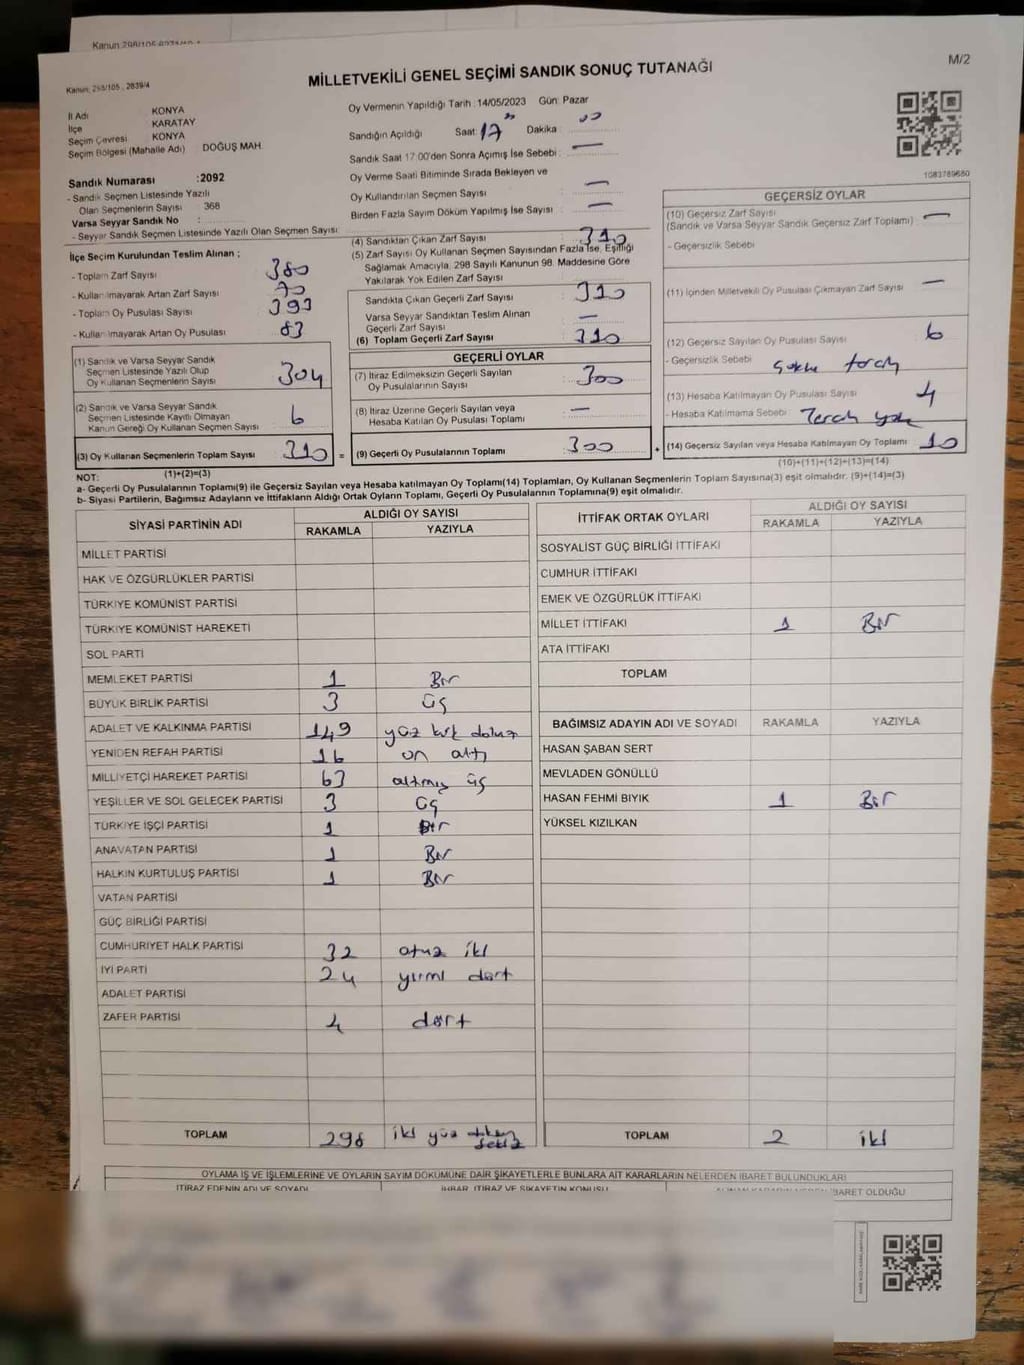 Kanun 298/105
M/2
Kanun: 298/105 , 2839/4
MİLLETVEKİLİ GENEL SEÇİMİ SANDIK SONUÇ TUTANAĞI
İl Adı KONYA
İlçe KARATAY
Seçim Çevresi KONYA
Seçim Bölgesi (Mahalle Adı) DOĞUŞ MAH.
Sandık Numarası :2092
- Sandık Seçmen Listesinde Yazılı
Olan Seçmenlerin Sayısı : 368
Varsa Seyyar Sandık No :
- Seyyar Sandık Seçmen Listesinde Yazılı Olan Seçmen Sayısı:
Oy Vermenin Yapıldığı Tarih :14/05/2023 Gün: Pazar
Sandığın Açıldığı Saat: 17 Dakika :
Sandık Saat 17:00'den Sonra Açımış İse Sebebi : —
Oy Verme Saati Bitiminde Sırada Bekleyen ve
Oy Kullandırılan Seçmen Sayısı : —
Birden Fazla Sayım Döküm Yapılmış İse Sayısı : —
1083789680
İlçe Seçim Kurulundan Teslim Alınan ;
- Toplam Zarf Sayısı 380
- Kullanılmayarak Artan Zarf Sayısı 70
- Toplam Oy Pusulası Sayısı 393
- Kullanılmayarak Artan Oy Pusulası 83
(1) Sandık ve Varsa Seyyar Sandık
Seçmen Listesinde Yazılı Olup
Oy Kullanan Seçmenlerin Sayısı : 304
(2) Sandık ve Varsa Seyyar Sandık
Seçmen Listesinde Kayıtlı Olmayan
Kanun Gereği Oy Kullanan Seçmen Sayısı : 6
(3) Oy Kullanan Seçmenlerin Toplam Sayısı : 310
(1)+(2)=(3)
(4) Sandıktan Çıkan Zarf Sayısı : 310
(5) Zarf Sayısı Oy Kullanan Seçmen Sayısından Fazla İse, Eşitliği
Sağlamak Amacıyla, 298 Sayılı Kanunun 98. Maddesine Göre
Yakılarak Yok Edilen Zarf Sayısı :
Sandıkta Çıkan Geçerli Zarf Sayısı : 310
Varsa Seyyar Sandıktan Teslim Alınan
Geçerli Zarf Sayısı : —
(6) Toplam Geçerli Zarf Sayısı : 310
GEÇERLİ OYLAR
(7) İtiraz Edilmeksizin Geçerli Sayılan
Oy Pusulalarının Sayısı : 300
(8) İtiraz Üzerine Geçerli Sayılan veya
Hesaba Katılan Oy Pusulası Toplamı : —
= (9) Geçerli Oy Pusulalarının Toplamı : 300
GEÇERSİZ OYLAR
(10) Geçersiz Zarf Sayısı
(Sandık ve Varsa Seyyar Sandık Geçersiz Zarf Toplamı) : —
- Geçersizlik Sebebi
(11) İçinden Milletvekili Oy Pusulası Çıkmayan Zarf Sayısı : —
(12) Geçersiz Sayılan Oy Pusulası Sayısı : 6
- Geçersizlik Sebebi
(13) Hesaba Katılmayan Oy Pusulası Sayısı : 4
- Hesaba Katılmama Sebebi : Tercih yok
+ (14) Geçersiz Sayılan veya Hesaba Katılmayan Oy Toplamı : 10
(10)+(11)+(12)+(13)=(14)
NOT:
a- Geçerli Oy Pusulalarının Toplamı(9) ile Geçersiz Sayılan veya Hesaba katılmayan Oy Toplamı(14) Toplamları, Oy Kullanan Seçmenlerin Toplam Sayısına(3) eşit olmalıdır. (9)+(14)=(3)
b- Siyasi Partilerin, Bağımsız Adayların ve İttifakların Aldığı Ortak Oyların Toplamı, Geçerli Oy Pusulalarının Toplamına(9) eşit olmalıdır.
SİYASİ PARTİNİN ADI ALDIĞI OY SAYISI
RAKAMLA YAZIYLA
MİLLET PARTİSİ
HAK VE ÖZGÜRLÜKLER PARTİSİ
TÜRKİYE KOMÜNİST PARTİSİ
TÜRKİYE KOMÜNİST HAREKETİ
SOL PARTİ
MEMLEKET PARTİSİ 1 Bir
BÜYÜK BİRLİK PARTİSİ 3 üç
ADALET VE KALKINMA PARTİSİ 149 yüz kırk dokuz
YENİDEN REFAH PARTİSİ 16 on altı
MİLLİYETÇİ HAREKET PARTİSİ 63 altmış üç
YEŞİLLER VE SOL GELECEK PARTİSİ 3 üç
TÜRKİYE İŞÇİ PARTİSİ 1 Bir
ANAVATAN PARTİSİ 1 Bir
HALKIN KURTULUŞ PARTİSİ 1 Bir
VATAN PARTİSİ
GÜÇ BİRLİĞİ PARTİSİ
CUMHURİYET HALK PARTİSİ 32 otuz iki
İYİ PARTİ 24 yirmi dört
ADALET PARTİSİ
ZAFER PARTİSİ 4 dört
TOPLAM 298 iki yüz doksan sekiz
İTTİFAK ORTAK OYLARI ALDIĞI OY SAYISI
RAKAMLA YAZIYLA
SOSYALİST GÜÇ BİRLİĞİ İTTİFAKI
CUMHUR İTTİFAKI
EMEK VE ÖZGÜRLÜK İTTİFAKI
MİLLET İTTİFAKI 1 Bir
ATA İTTİFAKI
TOPLAM
BAĞIMSIZ ADAYIN ADI VE SOYADI RAKAMLA YAZIYLA
HASAN ŞABAN SERT
MEVLADEN GÖNÜLLÜ
HASAN FEHMİ BIYIK 1 Bir
YÜKSEL KIZILKAN
TOPLAM 2 iki
OYLAMA İŞ VE İŞLEMLERİNE VE OYLARIN SAYIM DÖKÜMÜNE DAİR ŞİKAYETLERLE BUNLARA AİT KARARLARIN NELERDEN İBARET BULUNDUKLARI
İTİRAZ EDENİN ADI VE SOYADI İHBAR, İTİRAZ VE ŞİKAYETİN KONUSU İBARET OLDUĞU